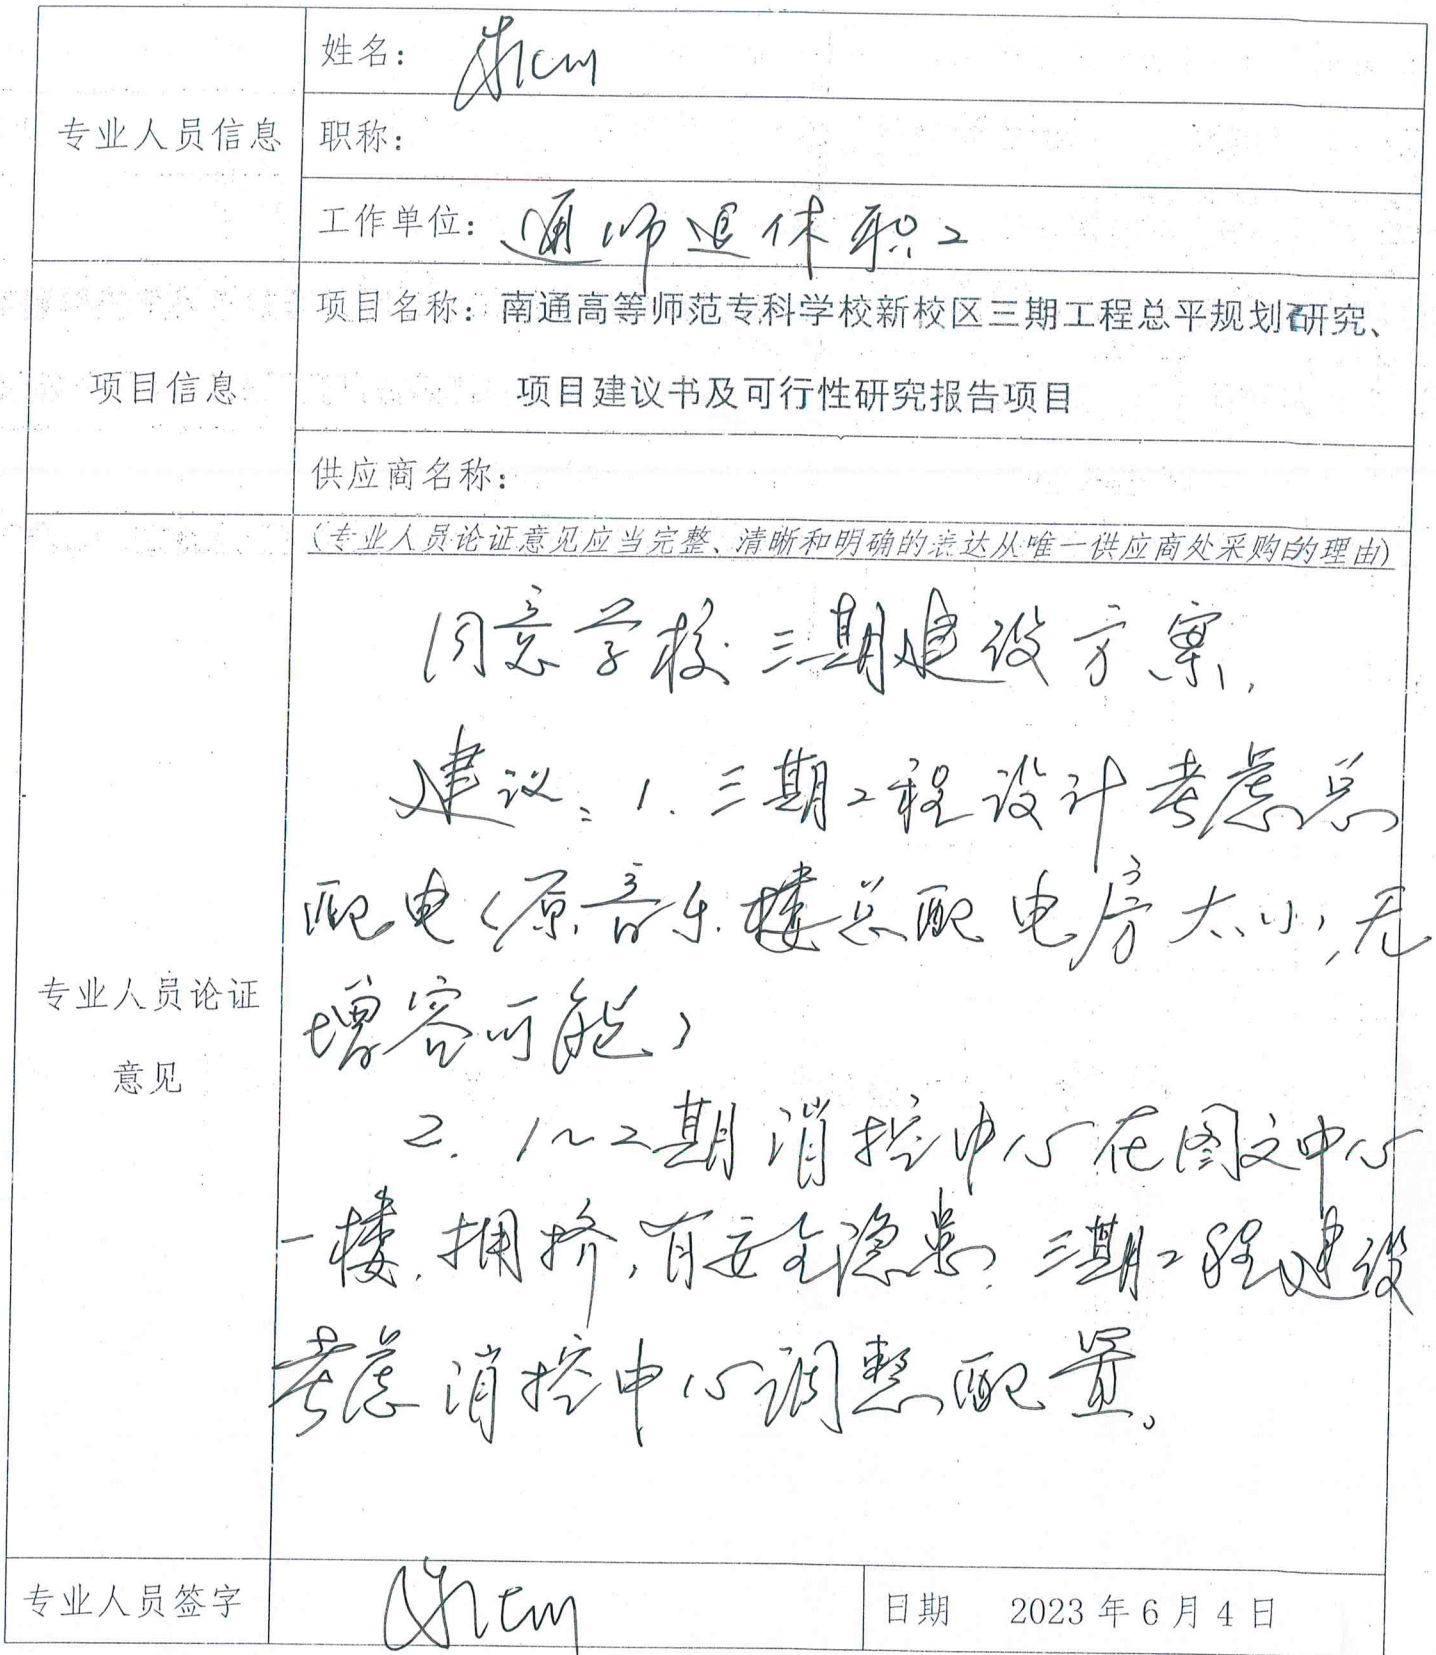 姓名：
专业人员信息
职称：
工作单位：通师退休职工
项目名称：南通高等师范专科学校新校区三期工程总平规划研究、
项目信息
项目建议书及可行性研究报告项目
供应商名称：
（专业人员论证意见应当完整、清晰和明确的表达从唯一供应商处采购的理由）
同意学校三期建设方案，
建议：1. 三期工程设计考虑总
配电（原音乐楼总配电房太小，无
增容可能）
2. 1～2期消控中心在图文中心
一楼，拥挤，有安全隐患，三期工程建设
考虑消控中心调整配置。
专业人员论证
意见
专业人员签字
日期 2023年6月4日